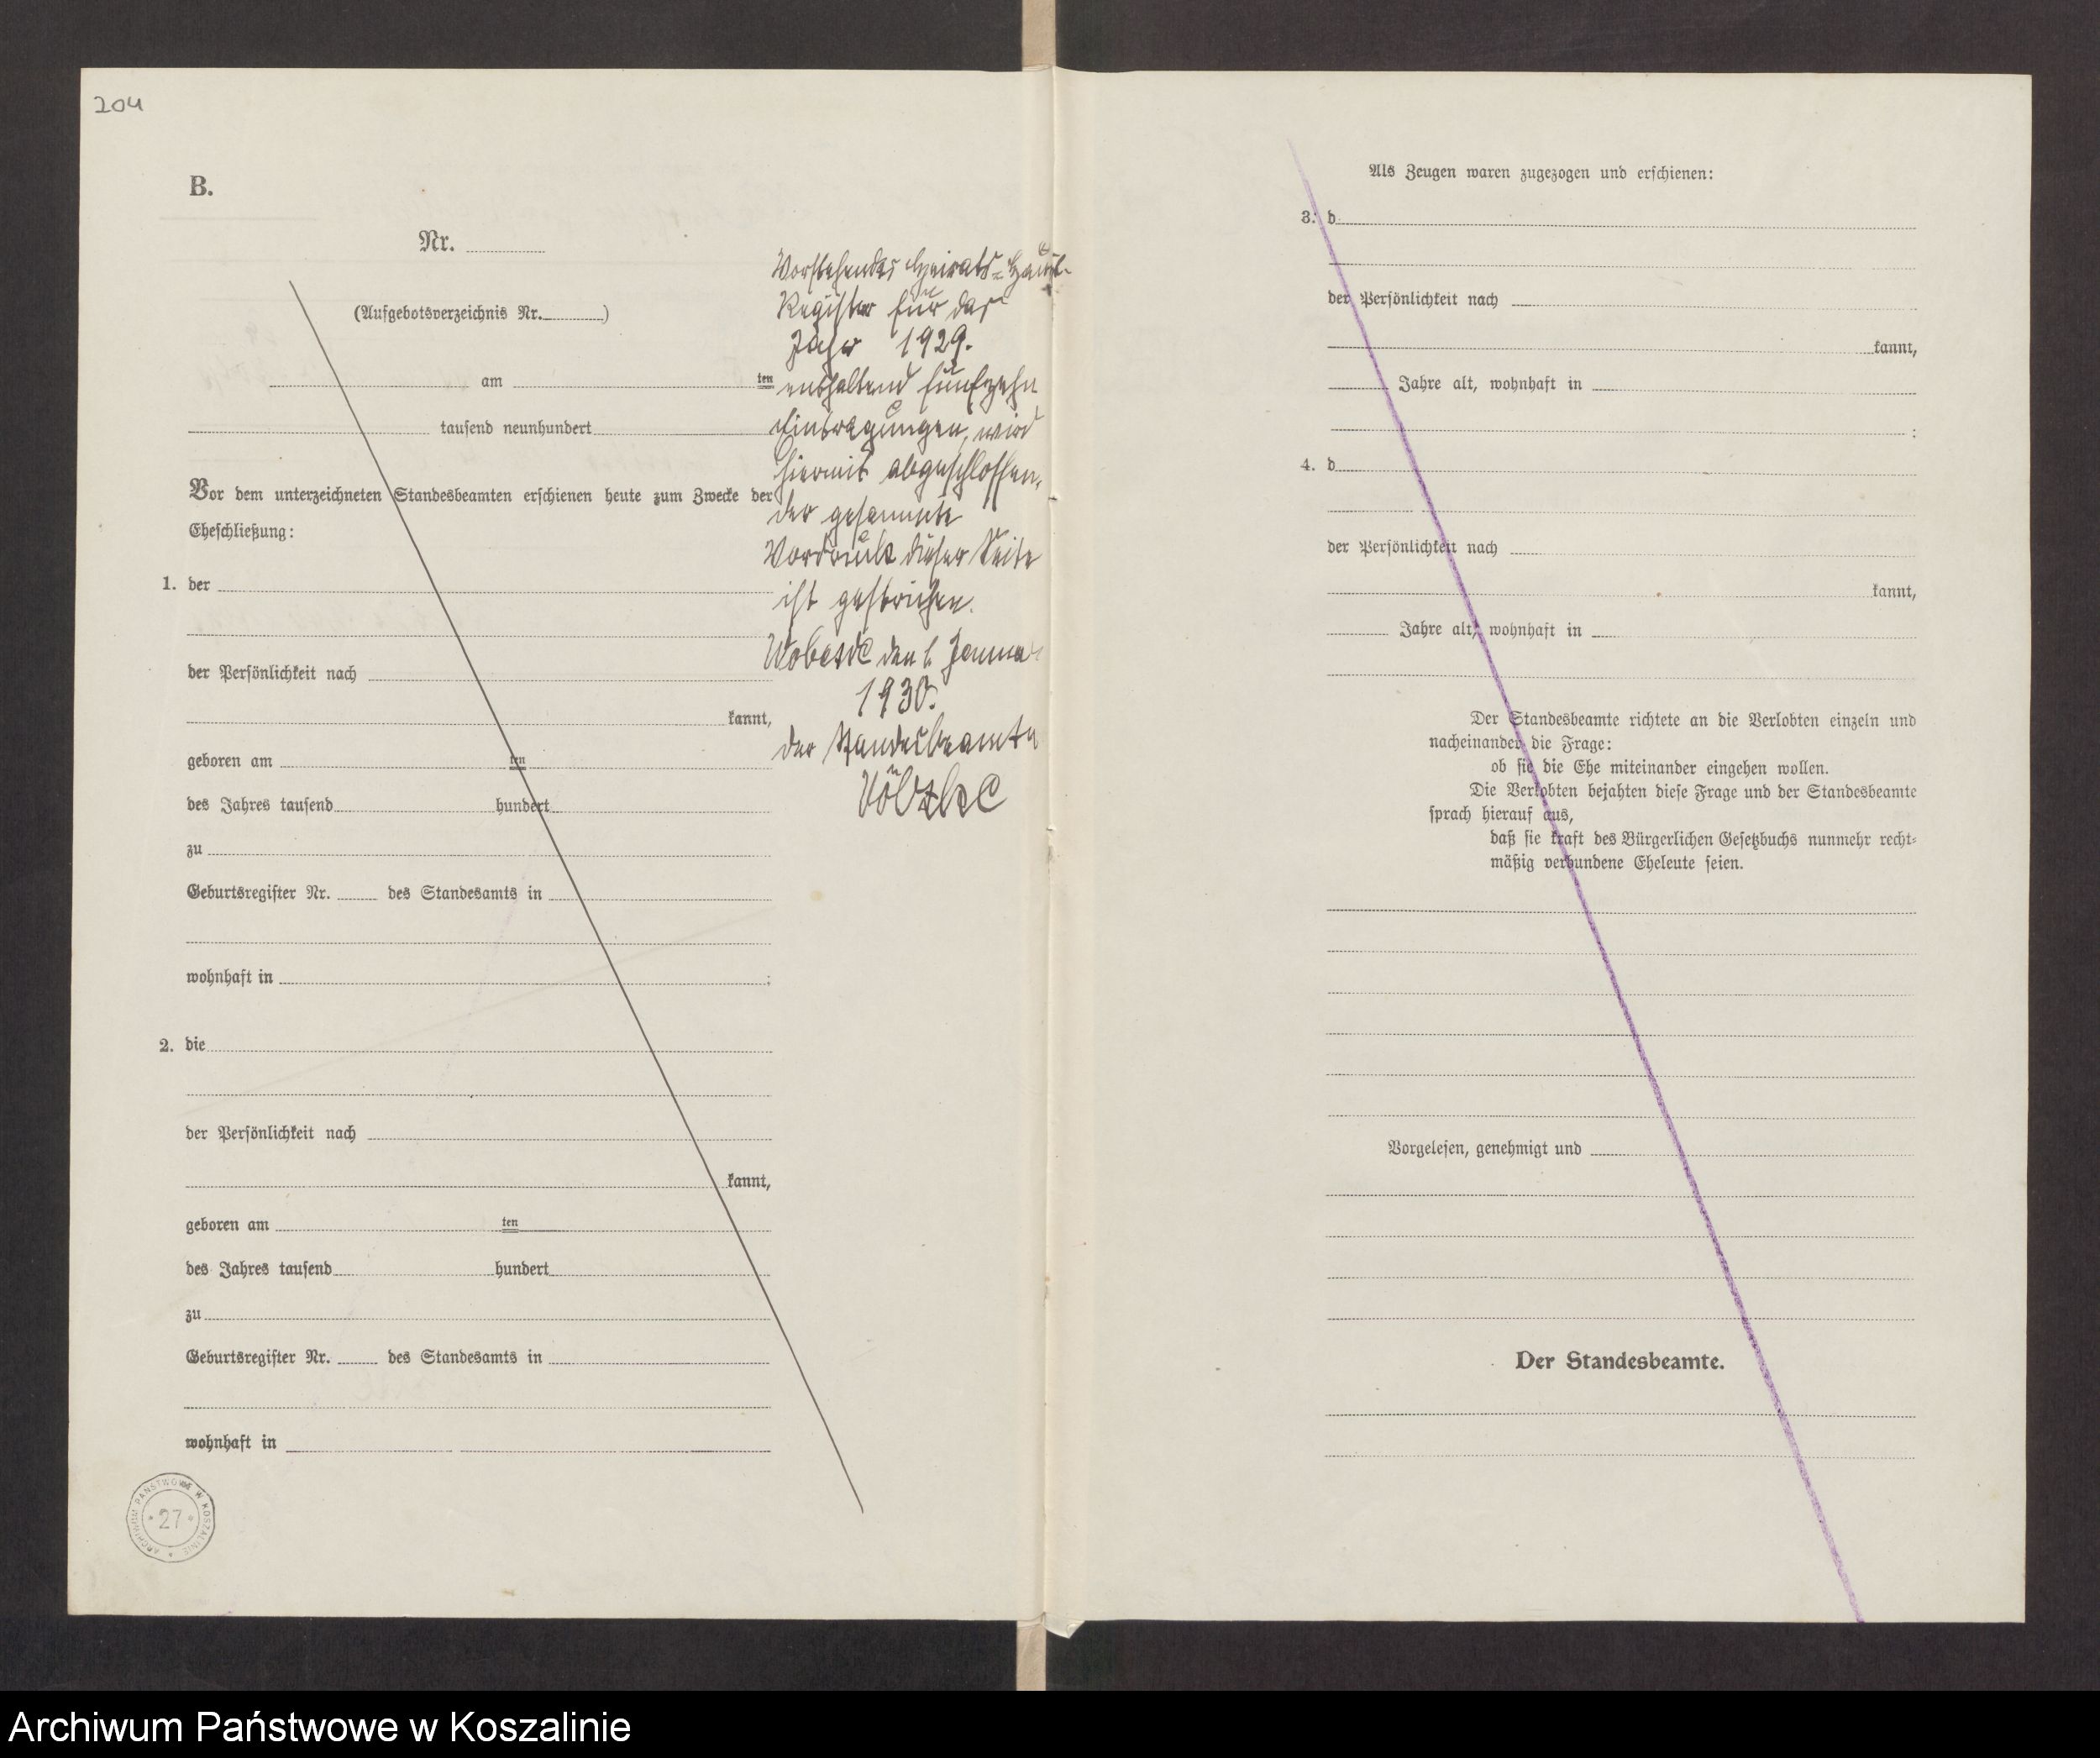 204
B.
Nr.
(Aufgebotsverzeichnis Nr. )
am ten
tausend neunhundert
Vor dem unterzeichneten Standesbeamten erschienen heute zum Zwecke der
Eheschließung:
1. der
der Persönlichkeit nach
kannt,
geboren am ten
des Jahres tausend hundert
zu
Geburtsregister Nr. des Standesamts in
wohnhaft in ;
2. die
der Persönlichkeit nach
kannt,
geboren am ten
des Jahres tausend hundert
zu
Geburtsregister Nr. des Standesamts in
wohnhaft in
Vorstehendes Heirats-Haupt-
Register für das
Jahr 1929.
enthaltend fünfzehn
Eintragungen, wird
hiermit abgeschlossen.
der gesammte
Vordruck dieser Seite
ist gestrichen.
Wobesde den 1. Januar
1930.
der Standesbeamte
Völtzke
ARCHIWUM PAŃSTWOWE W KOSZALINIE
* 27 *
Als Zeugen waren zugezogen und erschienen:
3. d
der Persönlichkeit nach
kannt,
Jahre alt, wohnhaft in
;
4. d
der Persönlichkeit nach
kannt,
Jahre alt, wohnhaft in
Der Standesbeamte richtete an die Verlobten einzeln und
nacheinander die Frage:
ob sie die Ehe miteinander eingehen wollen.
Die Verlobten bejahten diese Frage und der Standesbeamte
sprach hierauf aus,
daß sie kraft des Bürgerlichen Gesetzbuchs nunmehr recht-
mäßig verbundene Eheleute seien.
Vorgelesen, genehmigt und
Der Standesbeamte.
Archiwum Państwowe w Koszalinie